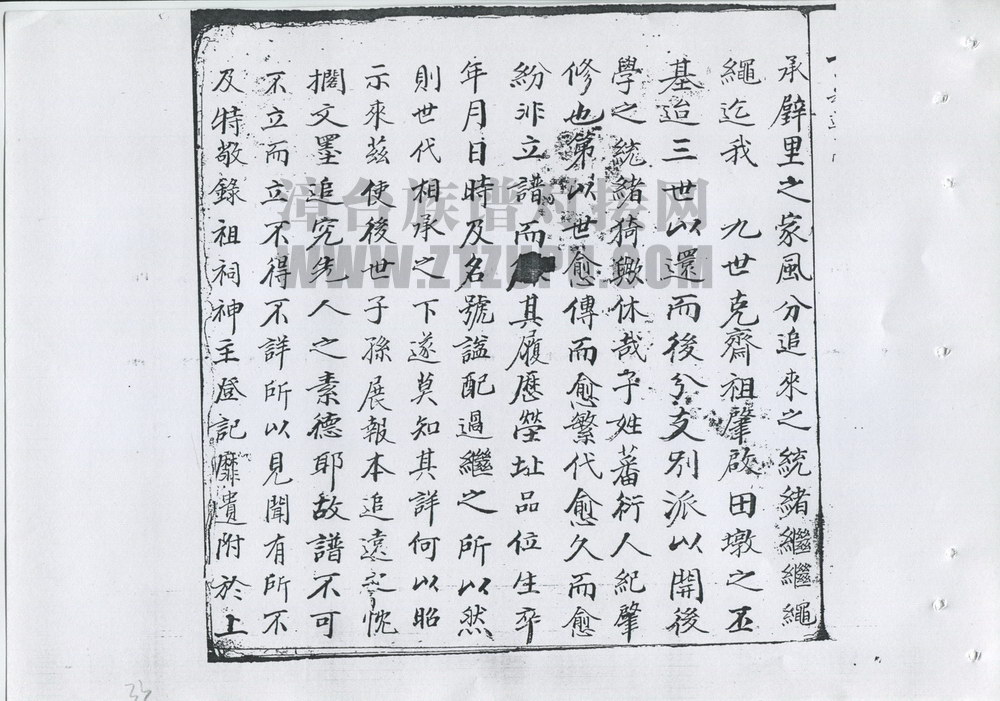 承壁里之家風分追來之統緒繼繼繩
繩迄我 九世克齋祖肇啟田墩之丕
基迨三世以還而後分支別派以開後
學之統緒猗歟休哉子姓蕃衍人紀肇
修也第以世愈傳而愈繁代愈久而愈
紛非立譜而其履歷塋址品位生卒
年月日時及名號諡配過繼之所以然
則世代相承之下遂莫知其詳何以昭
示來茲使後世子孫展報本追遠之忱
擱文墨追究先人之素德耶故譜不可
不立而立不得不詳所以見聞有所不
及特敬錄祖祠神主登記靡遺附於上
漳台族谱对接网
WWW.ZTZUPU.COM
33